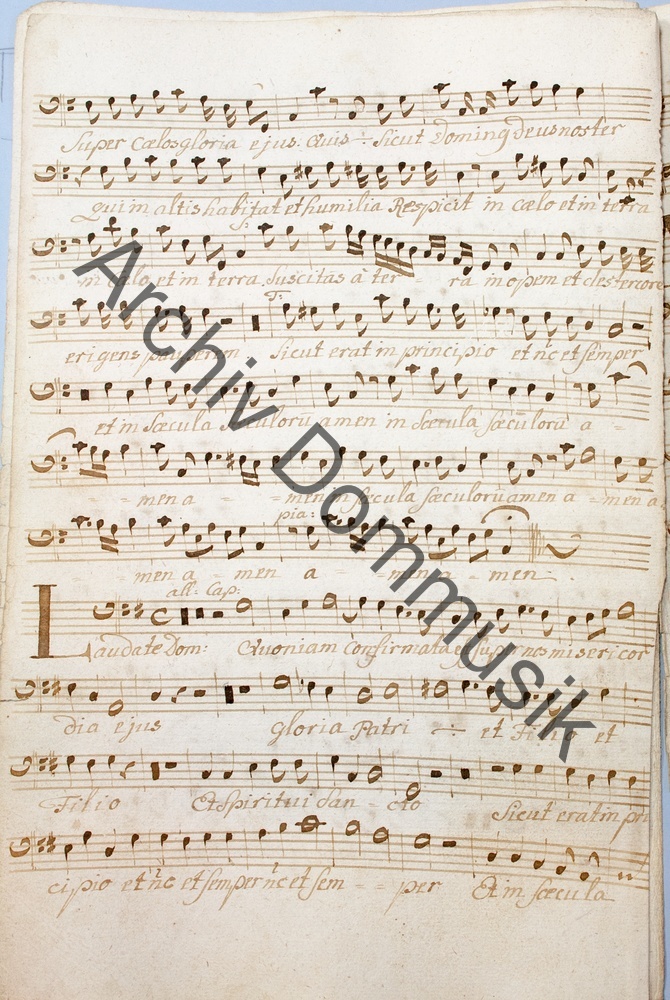 Super Cælos gloria ejus. Quis ÷ Sicut Doming Deus noster
Qui in altis habitat et humilia Respicit in cælo et in terra
in cælo et in terra Suscitas à ter - ra in opem et de stercore
T:
erigens pauperem Sicut erat in principio et nc et semper
et in Sæcula Sæculorū amen in Sæcula Sæculorū a -
- - men a - - men in sæcula sæculorū amen a - men a
pia:
- men a - men a - men a - men.
all: Cap:
Laudate Dom: Quoniam Confirmata e super nos misericor
dia ejus gloria Patri ÷ et Filio et
Filio Et Spiritui San - cto Sicut erat in pri
cipio et nc et semper nc et sem - - per Et in sæcula
Archiv Dommusik